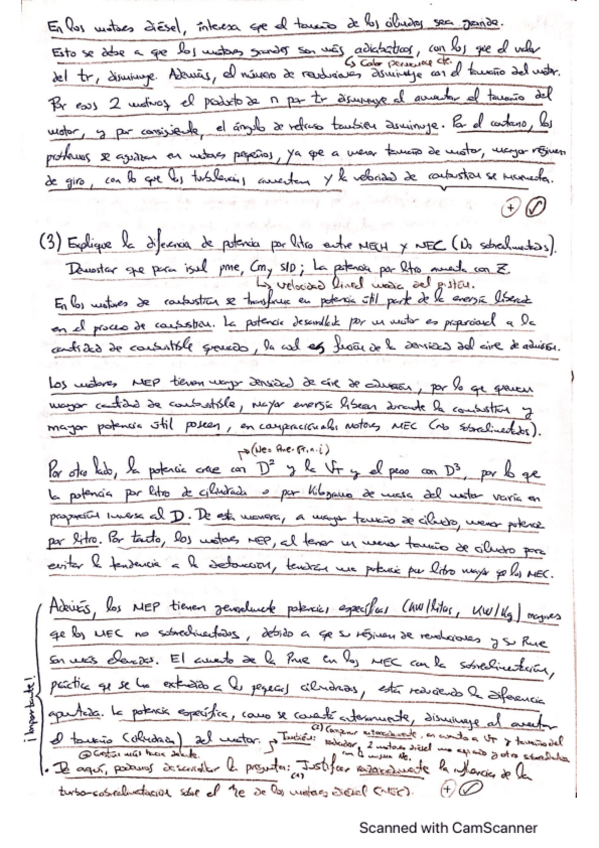 En los motores diésel, interesa que el tamaño de los cilindros sea grande.
Esto se debe a que los motores grandes son más adiabáticos, con los que el valor
↳ Calor permanece cte.
del tr, disminuye. Además, el número de revoluciones disminuye con el tamaño del motor.
Por esos 2 motivos, el producto de n por tr disminuye al aumentar el tamaño del
motor, y por consiguiente, el ángulo de retraso también disminuye. Por el contrario, los
problemas se agudizan en motores pequeños, ya que a menor tamaño de motor, mayor régimen
de giro, con lo que las turbulencias aumentan y la velocidad de combustión se incrementa.
(3) Explique la diferencia de potencia por litro entre MECH y MEC (No sobrealimentados).
Demostrar que para igual pme, Cm, S/D; La potencia por litro aumenta con Z.
↳ velocidad lineal media del pistón.
En los motores de combustión se transforma en potencia útil parte de la energía liberada
en el proceso de combustión. La potencia desarrollada por un motor es proporcional a la
cantidad de combustible quemado, la cual es función de la densidad del aire de admisión.
Los motores MEP tienen mayor densidad de aire de admisión, por lo que queman
mayor cantidad de combustible, mayor energía liberan durante la combustión y
mayor potencia útil poseen, en comparación motores MEC (no sobrealimentados).
Por otro lado, la potencia crece con D² y la VT y el peso con D³, por lo que
la potencia por litro de cilindrada o por kilogramo de masa del motor varía en
proporción inversa al D. De esta manera, a mayor tamaño de cilindro, menor potencia
por litro. Por tanto, los motores MEP, al tener un menor tamaño de cilindro para
evitar la tendencia a la detonación, tendrán una potencia por litro mayor que los MEC.
¡Importante!
Además, los MEP tienen generalmente potencias específicas (kW/litros, kW/kg) mayores
que los MEC no sobrealimentados, debido a que su régimen de revoluciones y su Pme
son más elevados. El aumento de la Pme en los MEC con la sobrealimentación,
práctica que se ha extendido a las pequeñas cilindradas, está reduciendo la diferencia
apuntada. La potencia específica, como se comentó anteriormente, disminuye al aumentar
el tamaño (cilindrada) del motor.
• De aquí, podemos desarrollar la pregunta: Justificar razonadamente la influencia de la
turbo-sobrealimentación sobre el ηe de los motores diésel (MEC).
Scanned with CamScanner